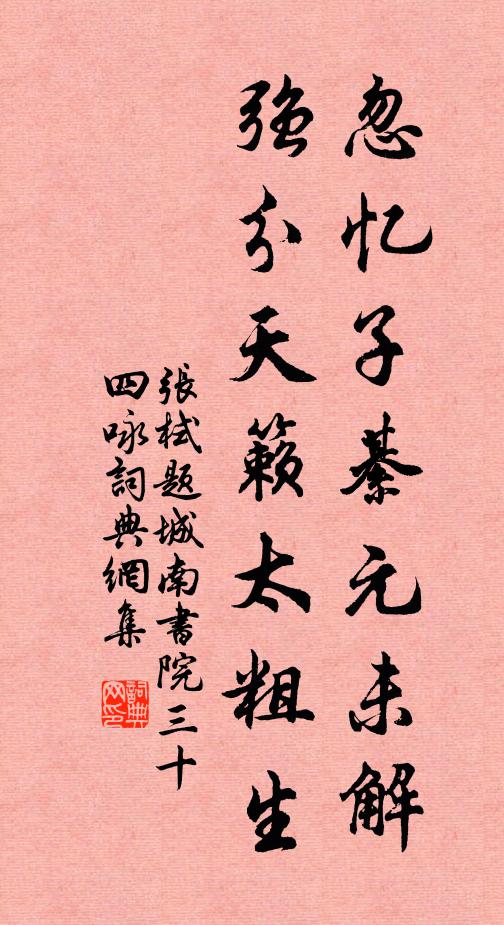 忽忆子綦元未解
強分天籟太粗生
張栻題城南書院三十
四咏詞典網集
詞典
网印